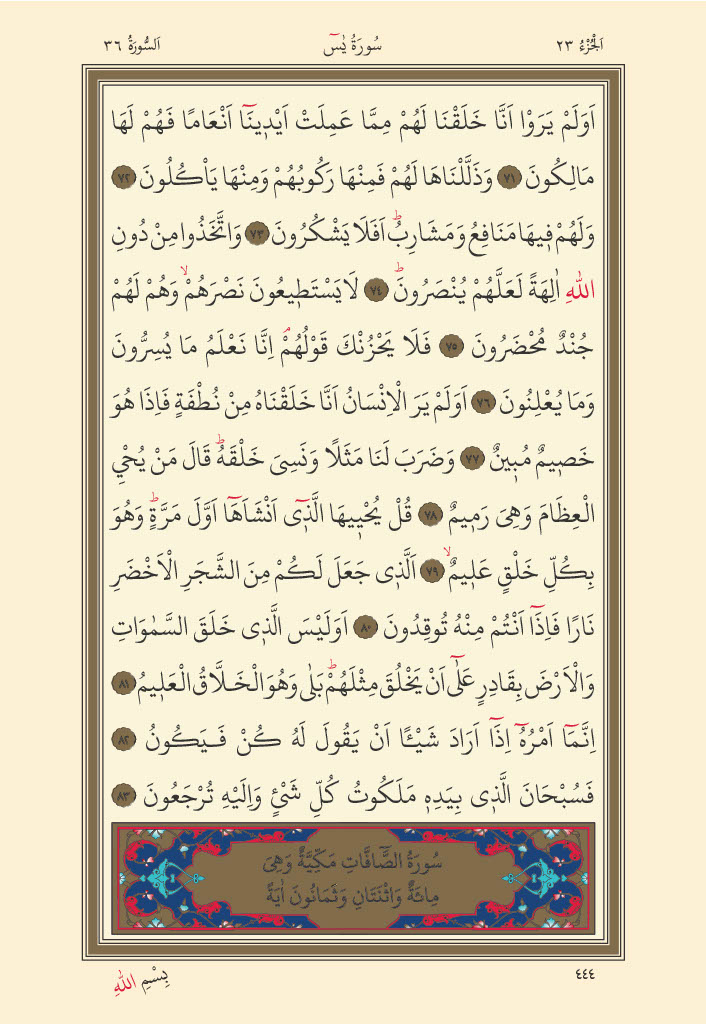 اَلْجُزْءُ ٢٣
سُورَةُ يٰسٓ
اَلسُّورَةُ ٣٦
اَوَلَمْ يَرَوْا اَنَّا خَلَقْنَا لَهُمْ مِمَّا عَمِلَتْ اَيْد۪ينَٓا اَنْعَامًا فَهُمْ لَهَا
مَالِكُونَ ﴿٧١﴾ وَذَلَّلْنَاهَا لَهُمْ فَمِنْهَا رَكُوبُهُمْ وَمِنْهَا يَأْكُلُونَ ﴿٧٢﴾
وَلَهُمْ ف۪يهَا مَنَافِعُ وَمَشَارِبُۜ اَفَلَا يَشْكُرُونَ ﴿٧٣﴾ وَاتَّخَذُوا مِنْ دُونِ
اللّٰهِ اٰلِهَةً لَعَلَّهُمْ يُنْصَرُونَۜ ﴿٧٤﴾ لَا يَسْتَط۪يعُونَ نَصْرَهُمْۙ وَهُمْ لَهُمْ
جُنْدٌ مُحْضَرُونَ ﴿٧٥﴾ فَلَا يَحْزُنْكَ قَوْلُهُمْۢ اِنَّا نَعْلَمُ مَا يُسِرُّونَ
وَمَا يُعْلِنُونَ ﴿٧٦﴾ اَوَلَمْ يَرَ الْاِنْسَانُ اَنَّا خَلَقْنَاهُ مِنْ نُطْفَةٍ فَاِذَا هُوَ
خَص۪يمٌ مُب۪ينٌ ﴿٧٧﴾ وَضَرَبَ لَنَا مَثَلًا وَنَسِيَ خَلْقَهُۜ قَالَ مَنْ يُحْيِ
الْعِظَامَ وَهِيَ رَم۪يمٌ ﴿٧٨﴾ قُلْ يُحْي۪يهَا الَّذ۪ٓي اَنْشَاَهَٓا اَوَّلَ مَرَّةٍۜ وَهُوَ
بِكُلِّ خَلْقٍ عَل۪يمٌۙ ﴿٧٩﴾ اَلَّذ۪ي جَعَلَ لَكُمْ مِنَ الشَّجَرِ الْاَخْضَرِ
نَارًا فَاِذَٓا اَنْتُمْ مِنْهُ تُوقِدُونَ ﴿٨٠﴾ اَوَلَيْسَ الَّذ۪ي خَلَقَ السَّمٰوَاتِ
وَالْاَرْضَ بِقَادِرٍ عَلٰٓى اَنْ يَخْلُقَ مِثْلَهُمْۜ بَلٰى وَهُوَ الْخَلَّاقُ الْعَل۪يمُ ﴿٨١﴾
اِنَّمَٓا اَمْرُهُٓ اِذَٓا اَرَادَ شَيْـًٔا اَنْ يَقُولَ لَهُ كُنْ فَيَكُونُ ﴿٨٢﴾
فَسُبْحَانَ الَّذ۪ي بِيَدِه۪ مَلَكُوتُ كُلِّ شَيْءٍ وَاِلَيْهِ تُرْجَعُونَ ﴿٨٣﴾
سُورَةُ الصَّٓافَّاتِ مَكِّيَّةٌ وَهِيَ
مِائَةٌ وَاثْنَتَانِ وَثَمَانُونَ اٰيَةً
٤٤٤
بِسْمِ اللّٰهِ